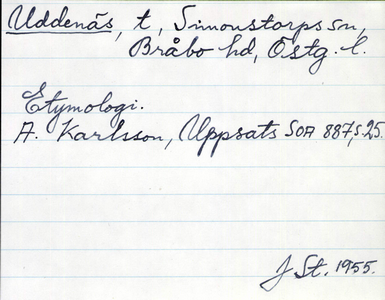 Uddenäs, t, Simonstorps sn,
Bråbo hd, Östg. l.
Etymologi.
A. Karlsson, Uppsats SOA 887, s. 25.
J St. 1955.